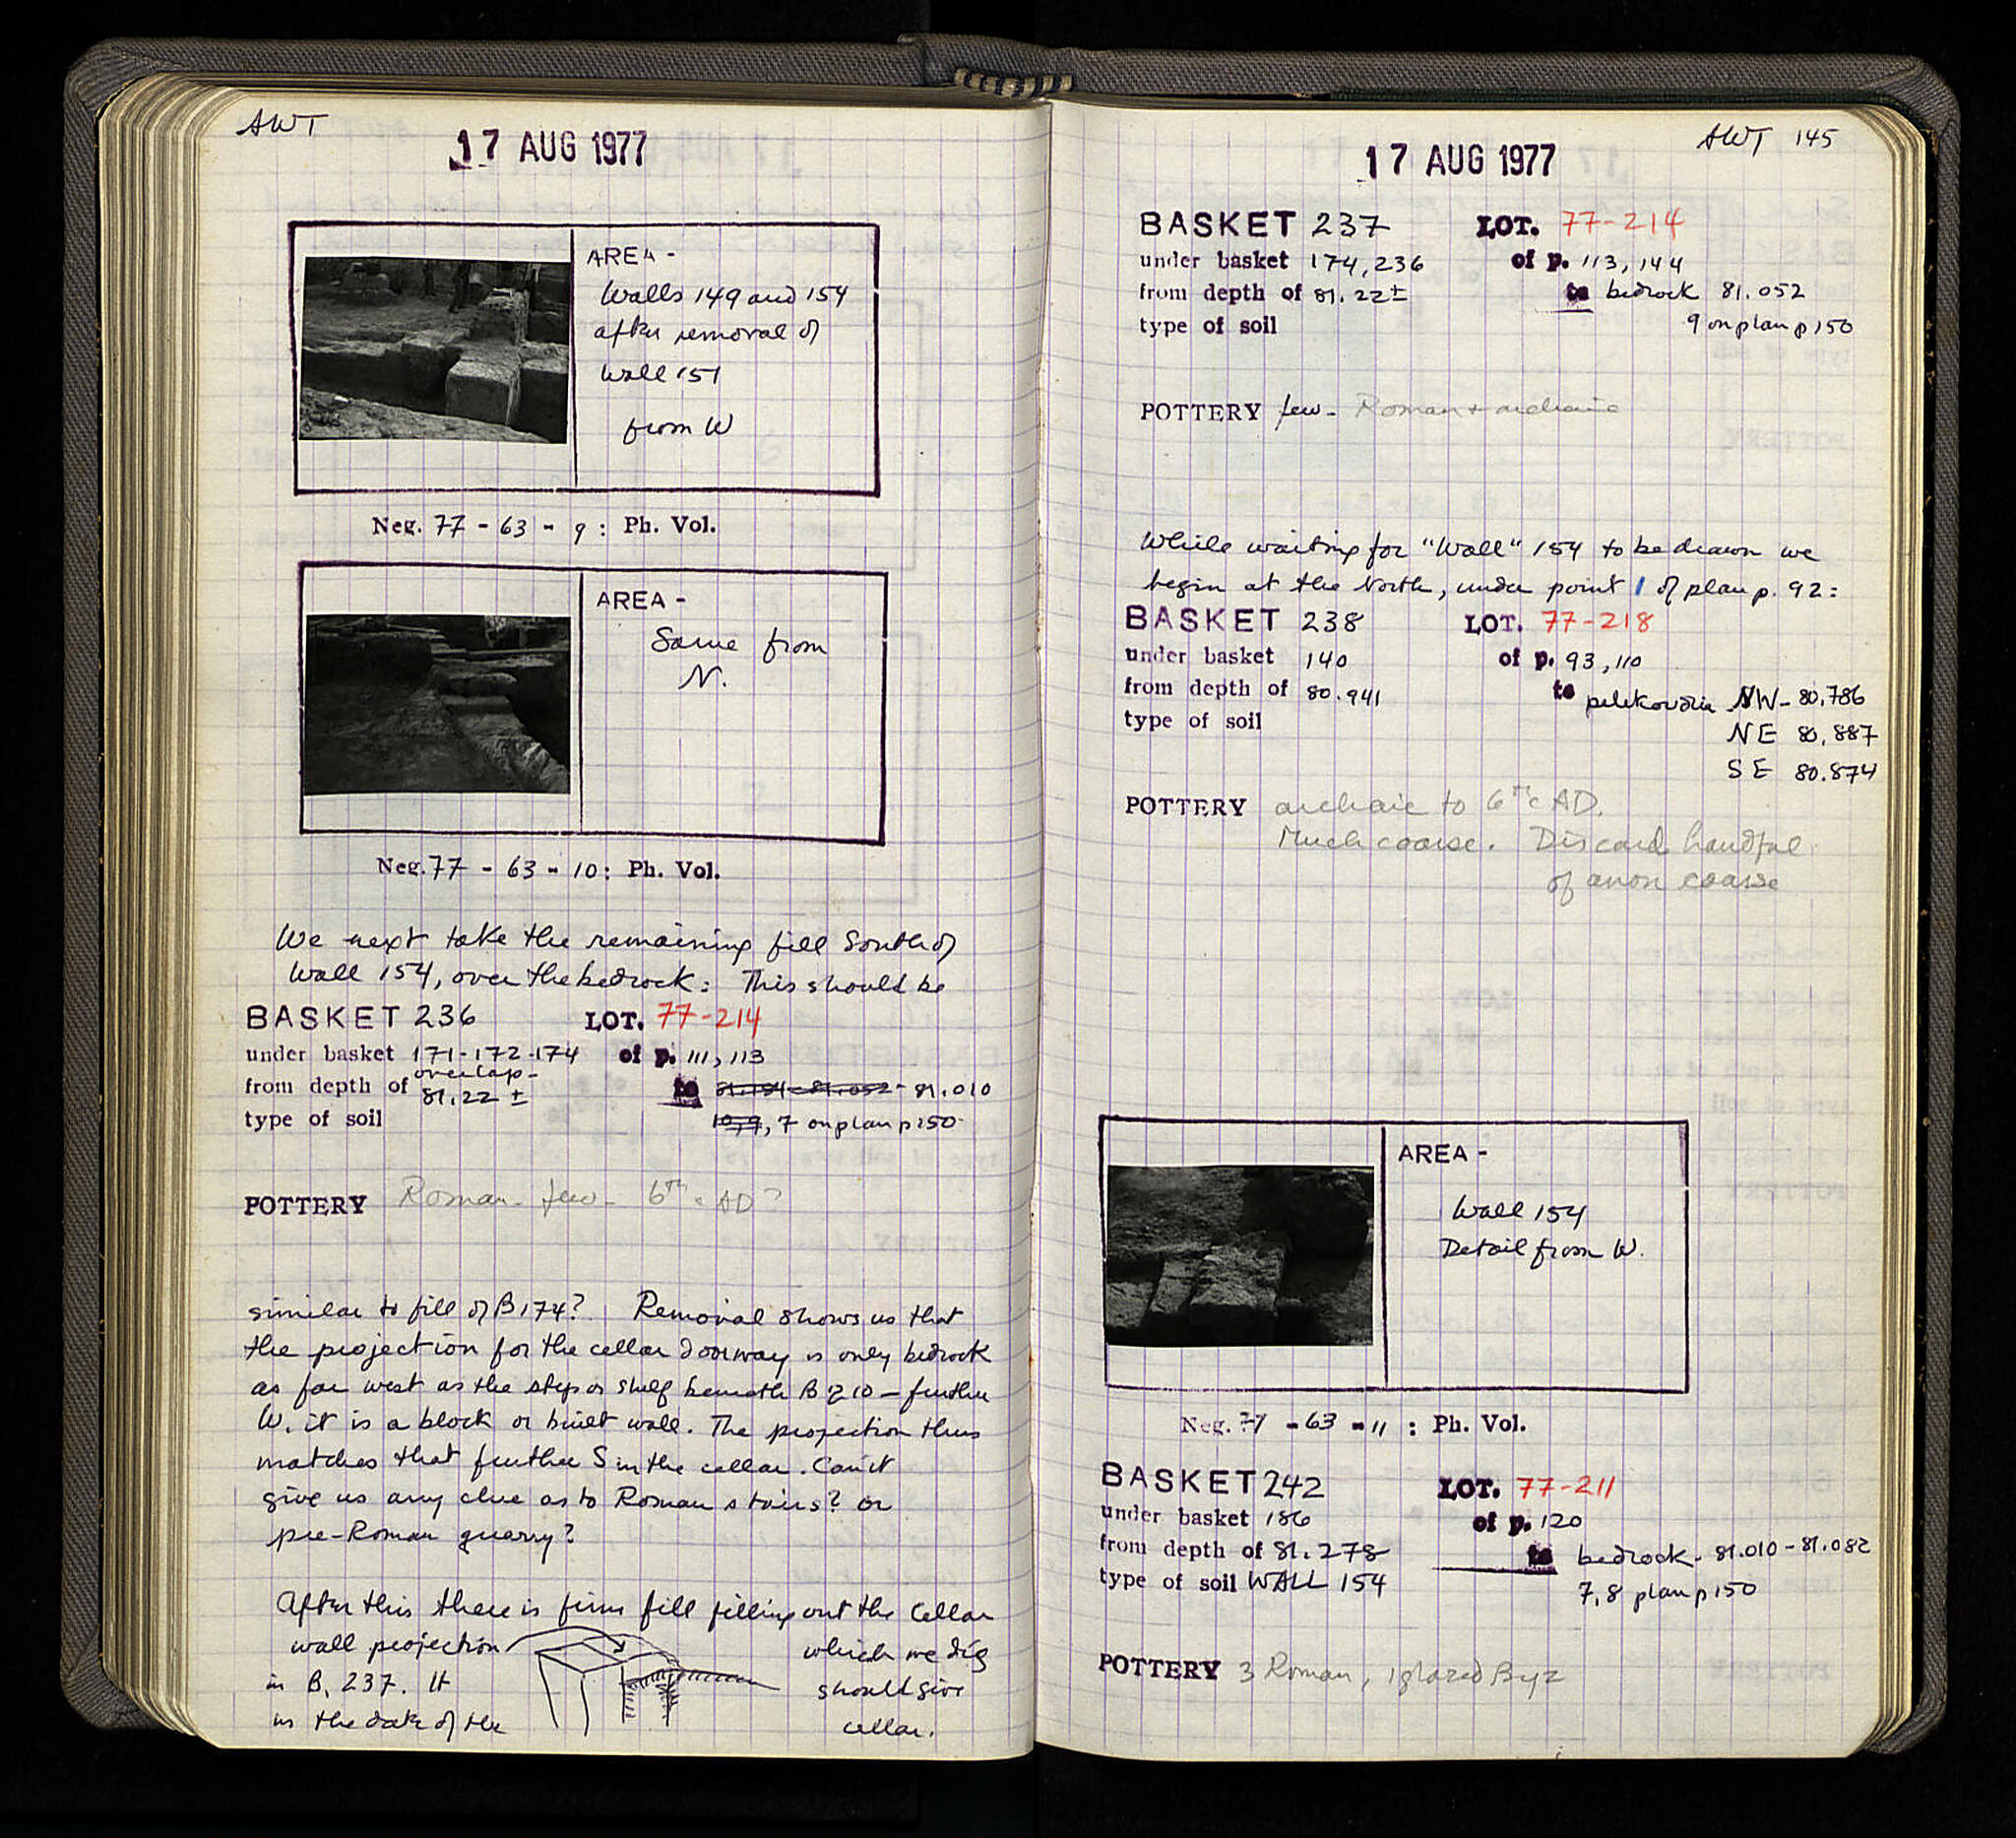 AWT
17 AUG 1977
AREA -
Walls 149 and 154
after removal of
Wall 151
from W
Neg. 77 - 63 - 9 : Ph. Vol.
AREA -
Same from
N.
Neg. 77 - 63 - 10 : Ph. Vol.
We next take the remaining fill South of
Wall 154, over the bedrock: This should be
BASKET 236 LOT. 77-214
under basket 171-172-174 of p. 111, 113
overlap-
from depth of 81.22 ± to 81.154 - 81.052 - 81.010
type of soil 10, 9, 7 on plan p 150
POTTERY Roman - few - 6th c AD?
similar to fill of B 174? Removal shows us that
the projection for the cellar doorway is only bedrock
as far west as the step or shelf beneath B 210 - further
W. it is a block or built wall. The projection thus
matches that further S in the cellar. Can it
give us any clue as to Roman stairs? or
pre-Roman quarry?
After this there is firm fill filling out the cellar
wall projection which we dig
in B. 237. It should give
us the date of the cellar.
AWT 145
17 AUG 1977
BASKET 237 LOT. 77-214
under basket 174, 236 of p. 113, 144
from depth of 81.22 ± to bedrock 81.052
type of soil 9 on plan p 150
POTTERY few - Roman + archaic
While waiting for "Wall" 154 to be drawn we
begin at the North, under point 1 of plan p. 92:
BASKET 238 LOT. 77-218
under basket 140 of p. 93, 110
from depth of 80.941 to pelekoudia NW - 80.786
type of soil NE 80.887
SE 80.874
POTTERY archaic to 6th c AD.
Much coarse. Discard handful
of anon coarse
AREA -
Wall 154
Detail from W.
Neg. 77 - 63 - 11 : Ph. Vol.
BASKET 242 LOT. 77-211
under basket 186 of p. 120
from depth of 81.278 to bedrock - 81.010 - 81.082
type of soil WALL 154 7, 8 plan p 150
POTTERY 3 Roman, 1 glazed Byz